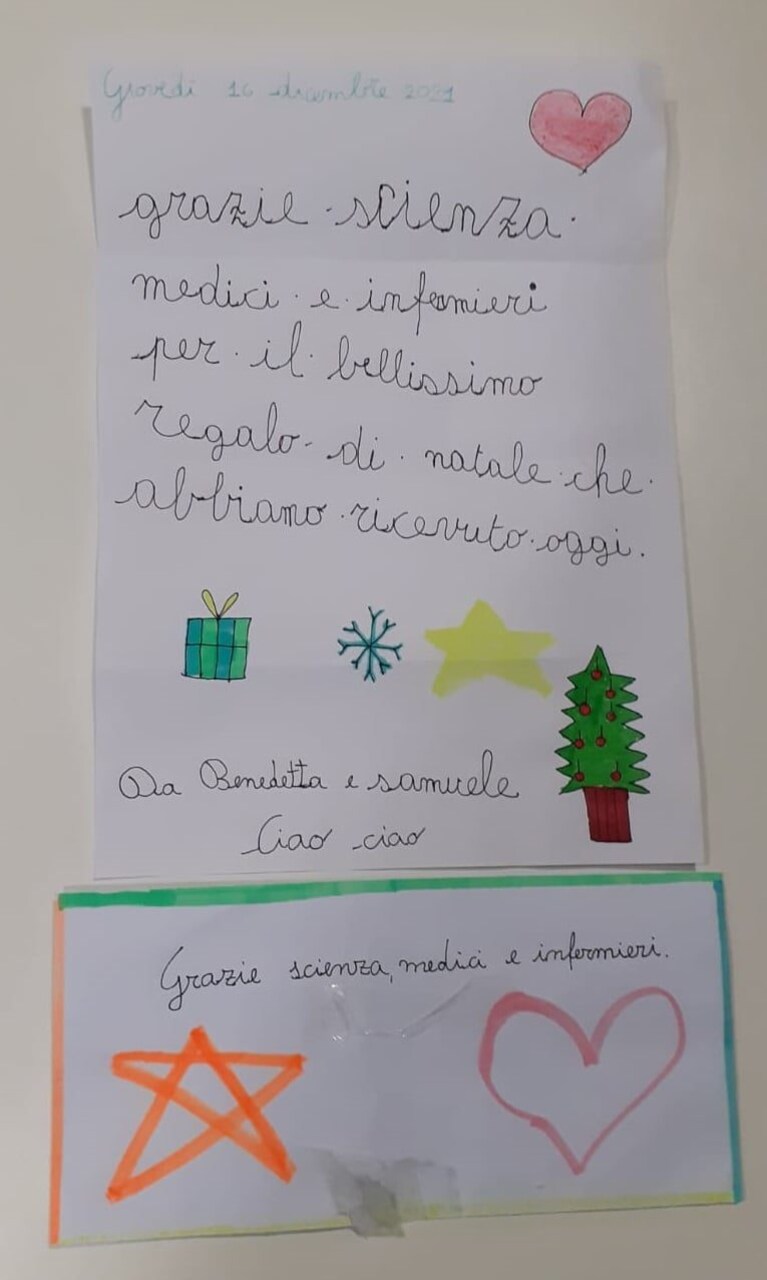 Giovedì 16 dicembre 2021
grazie scienza
medici e infermieri
per il bellissimo
regalo di natale che
abbiamo ricevuto oggi.
Da Benedetta e samuele
Ciao ciao
Grazie scienza, medici e infermieri.